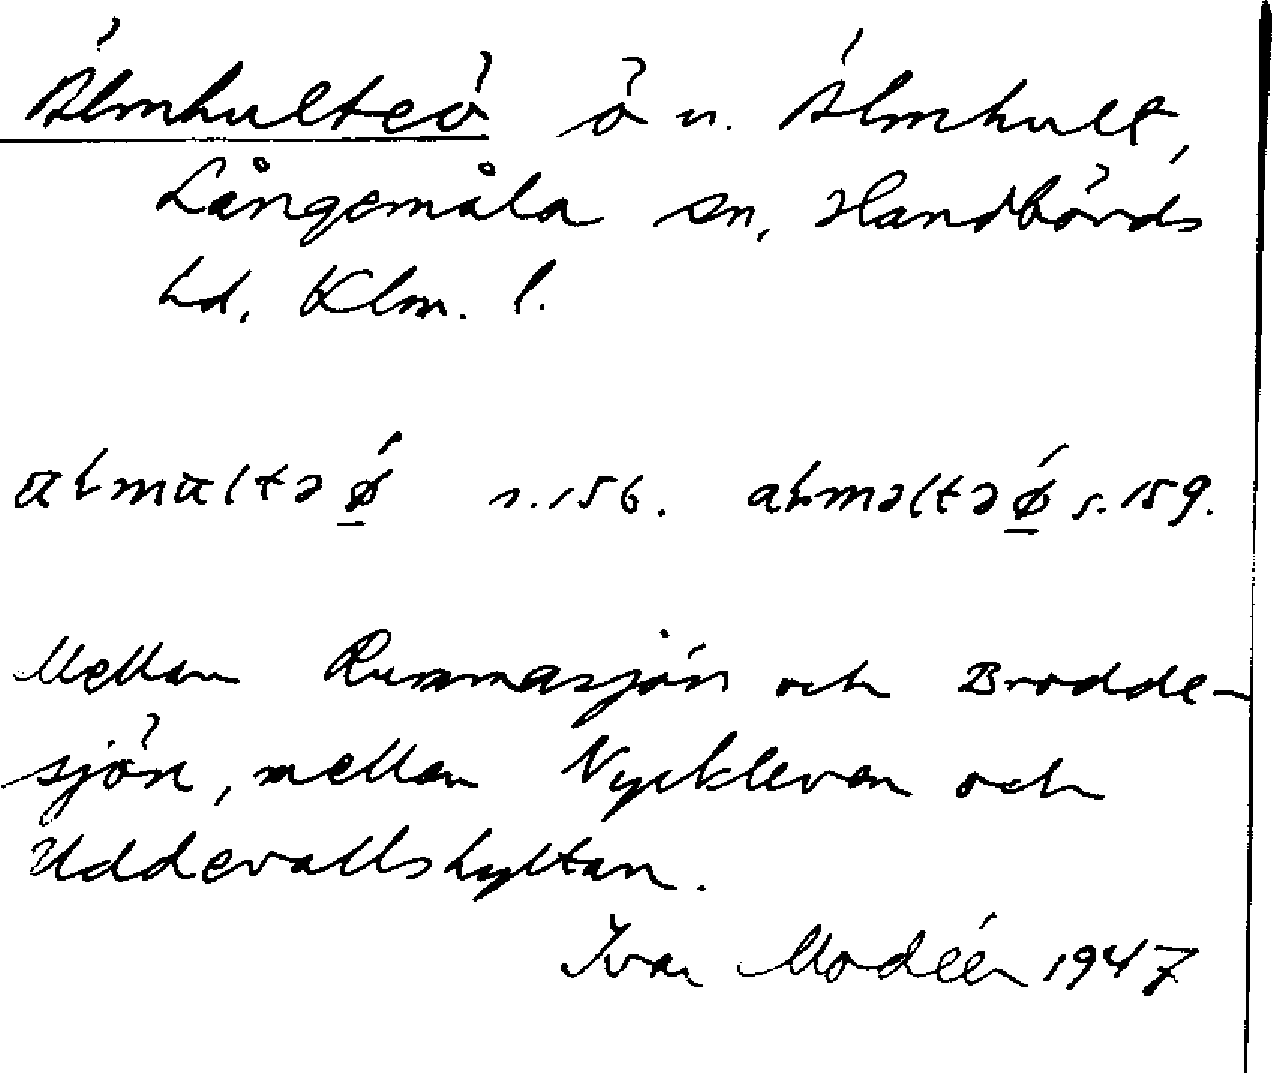 Älmhulteö ö u. Älmhult,
Långemåla sn, Handbörds
hd. Klm. l.
s. 156. s. 159.
Mellan Rummasjön och Brodde-
sjön, mellan Nyckleven och
Uddevallshyltan.
Ivar Modéer 1947